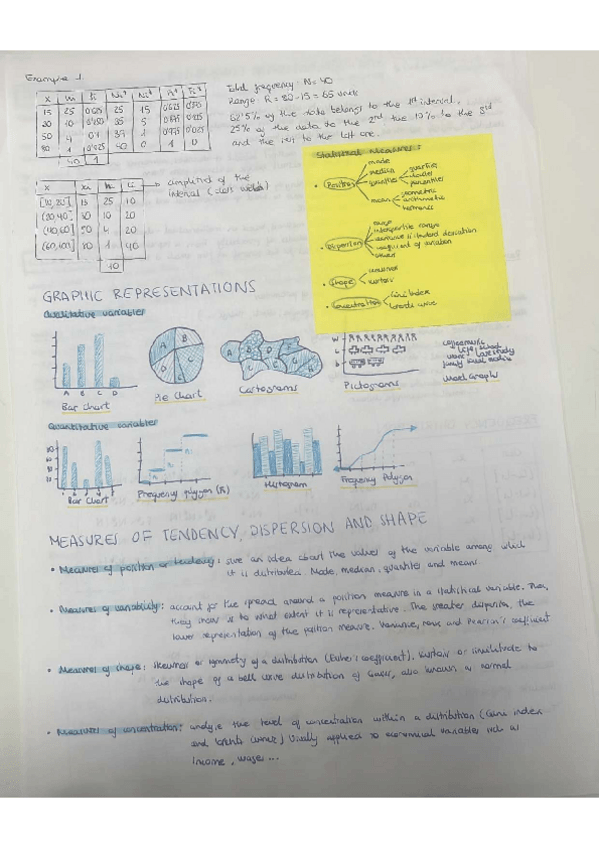 Example 1.
x ni fi Ni↑ Ni↓ Fi↑ Fi↓
15 25 0'625 25 15 0'625 0'375
20 10 0'250 35 5 0'875 0'125
50 4 0'1 39 1 0'975 0'025
80 1 0'025 40 0 1 0
40 1
Total frequency: N = 40
Range R = 80 - 15 = 65 units
62'5% of the data belongs to the 1st interval,
25% of the data to the 2nd, the 10% to the 3rd
and the rest to the left one.
x xi ni
15 25 10
(20,40] 30 10 20
(40,60] 50 4 20
(60,100] 80 1 40
40
→ amplitud of the
interval (class width)
Statistical Measures:
• Position
mode
median
quantiles
quartiles
deciles
percentiles
mean
geometric
arithmetic
• Dispersion
range
interquartile range
variance / standard deviation
coefficient of variation
• Shape
• Concentration
Gini Index
Lorentz curve
GRAPHIC REPRESENTATIONS
Qualitative variables
A B C D
Bar chart
Pie Chart
Cartograms
Pictograms
word graphs
Quantitative variables
Bar Chart
Frequency polygon (Fi)
Histogram
Frequency Polygon
MEASURES OF TENDENCY, DISPERSION AND SHAPE
• Measures of position or tendency: give an idea about the values of the variable among which
it is distributed. Mode, median, quantiles and means.
• Measures of variability: account for the spread around a position measure in a statistical variable. Thus,
they show is to what extent it is representative. The greater dispersion, the
lower representation of the position measure. Variance, range and Pearson's coefficient
• Measures of shape: skewness or symmetry of a distribution (Fisher's coefficient). Kurtosis or similitude to
the shape of a bell curve distribution of Gauss, also known as normal
distribution.
• Measures of concentration: analyze the level of concentration within a distribution (Gini index
and Lorentz curve). Usually applied to economical variables such as
income, wages...